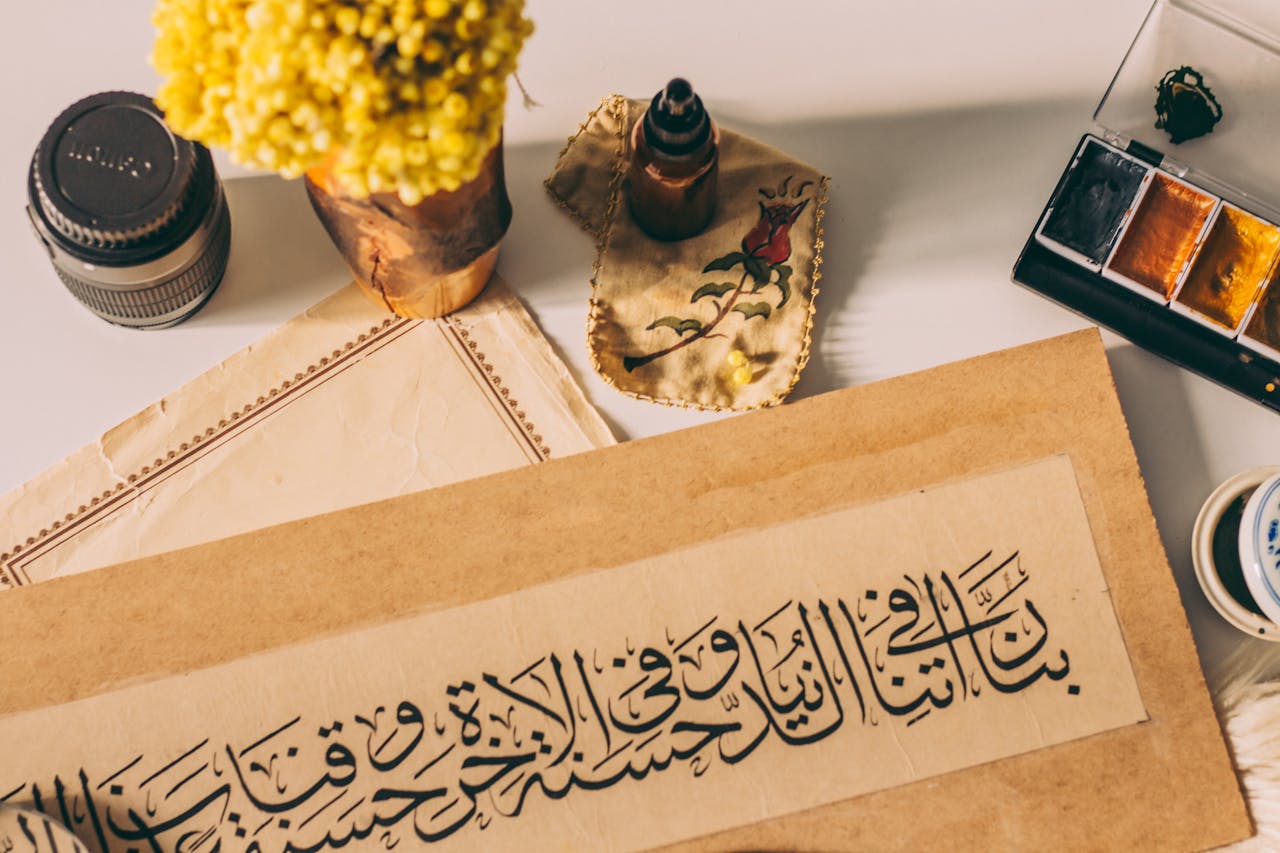 Canon
ربنا اتنا في الدنيا حسنة وفي الاخرة حسنة وقنا عذاب